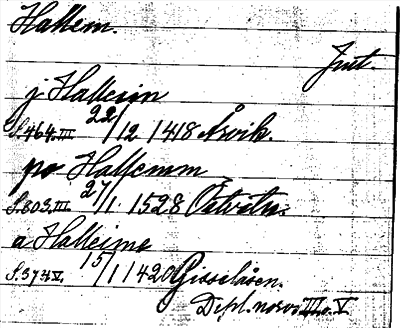 Hallem.
Jmt.
j Halleim
S. 464. III 22/12 1418 Åsvik.
po Hallemm
S. 803. III. 27/1 1528
a Halleime
S. 374 V. 15/1 1420 Gisselåsen.
Dipl. norv. III o. V